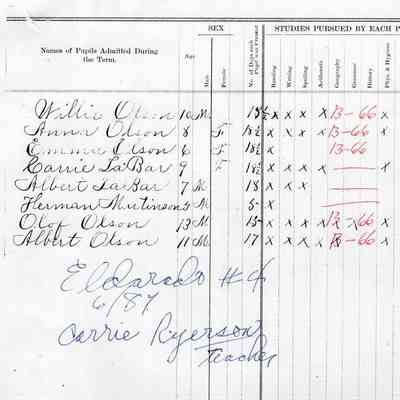 SEX
STUDIES PURSUED BY EACH P
Names of Pupils Admitted During the Term.
Age
Male
Female
No. of Days each Pupil was Present
Reading
Writing
Spelling
Arithmetic
Geography
Grammar
History
Phys. & Hygiene
Willie Olson 10 M 18½ x x x x B-66 x
Anna Olson 8 F x x x x B-66 x
Emma Olson 6 F x B-66
Carrie LaBar 9 F x x x x x
Albert LaBar 7 M 18 x x x
Herman Mutinson 5 M 5 x
Olof Olson 13 M 15 x x x x B-66 x
Albert Olson 11 M 17 x x x x B-66 x
Eldarado #4
6/87
Carrie Ryerson
Teacher